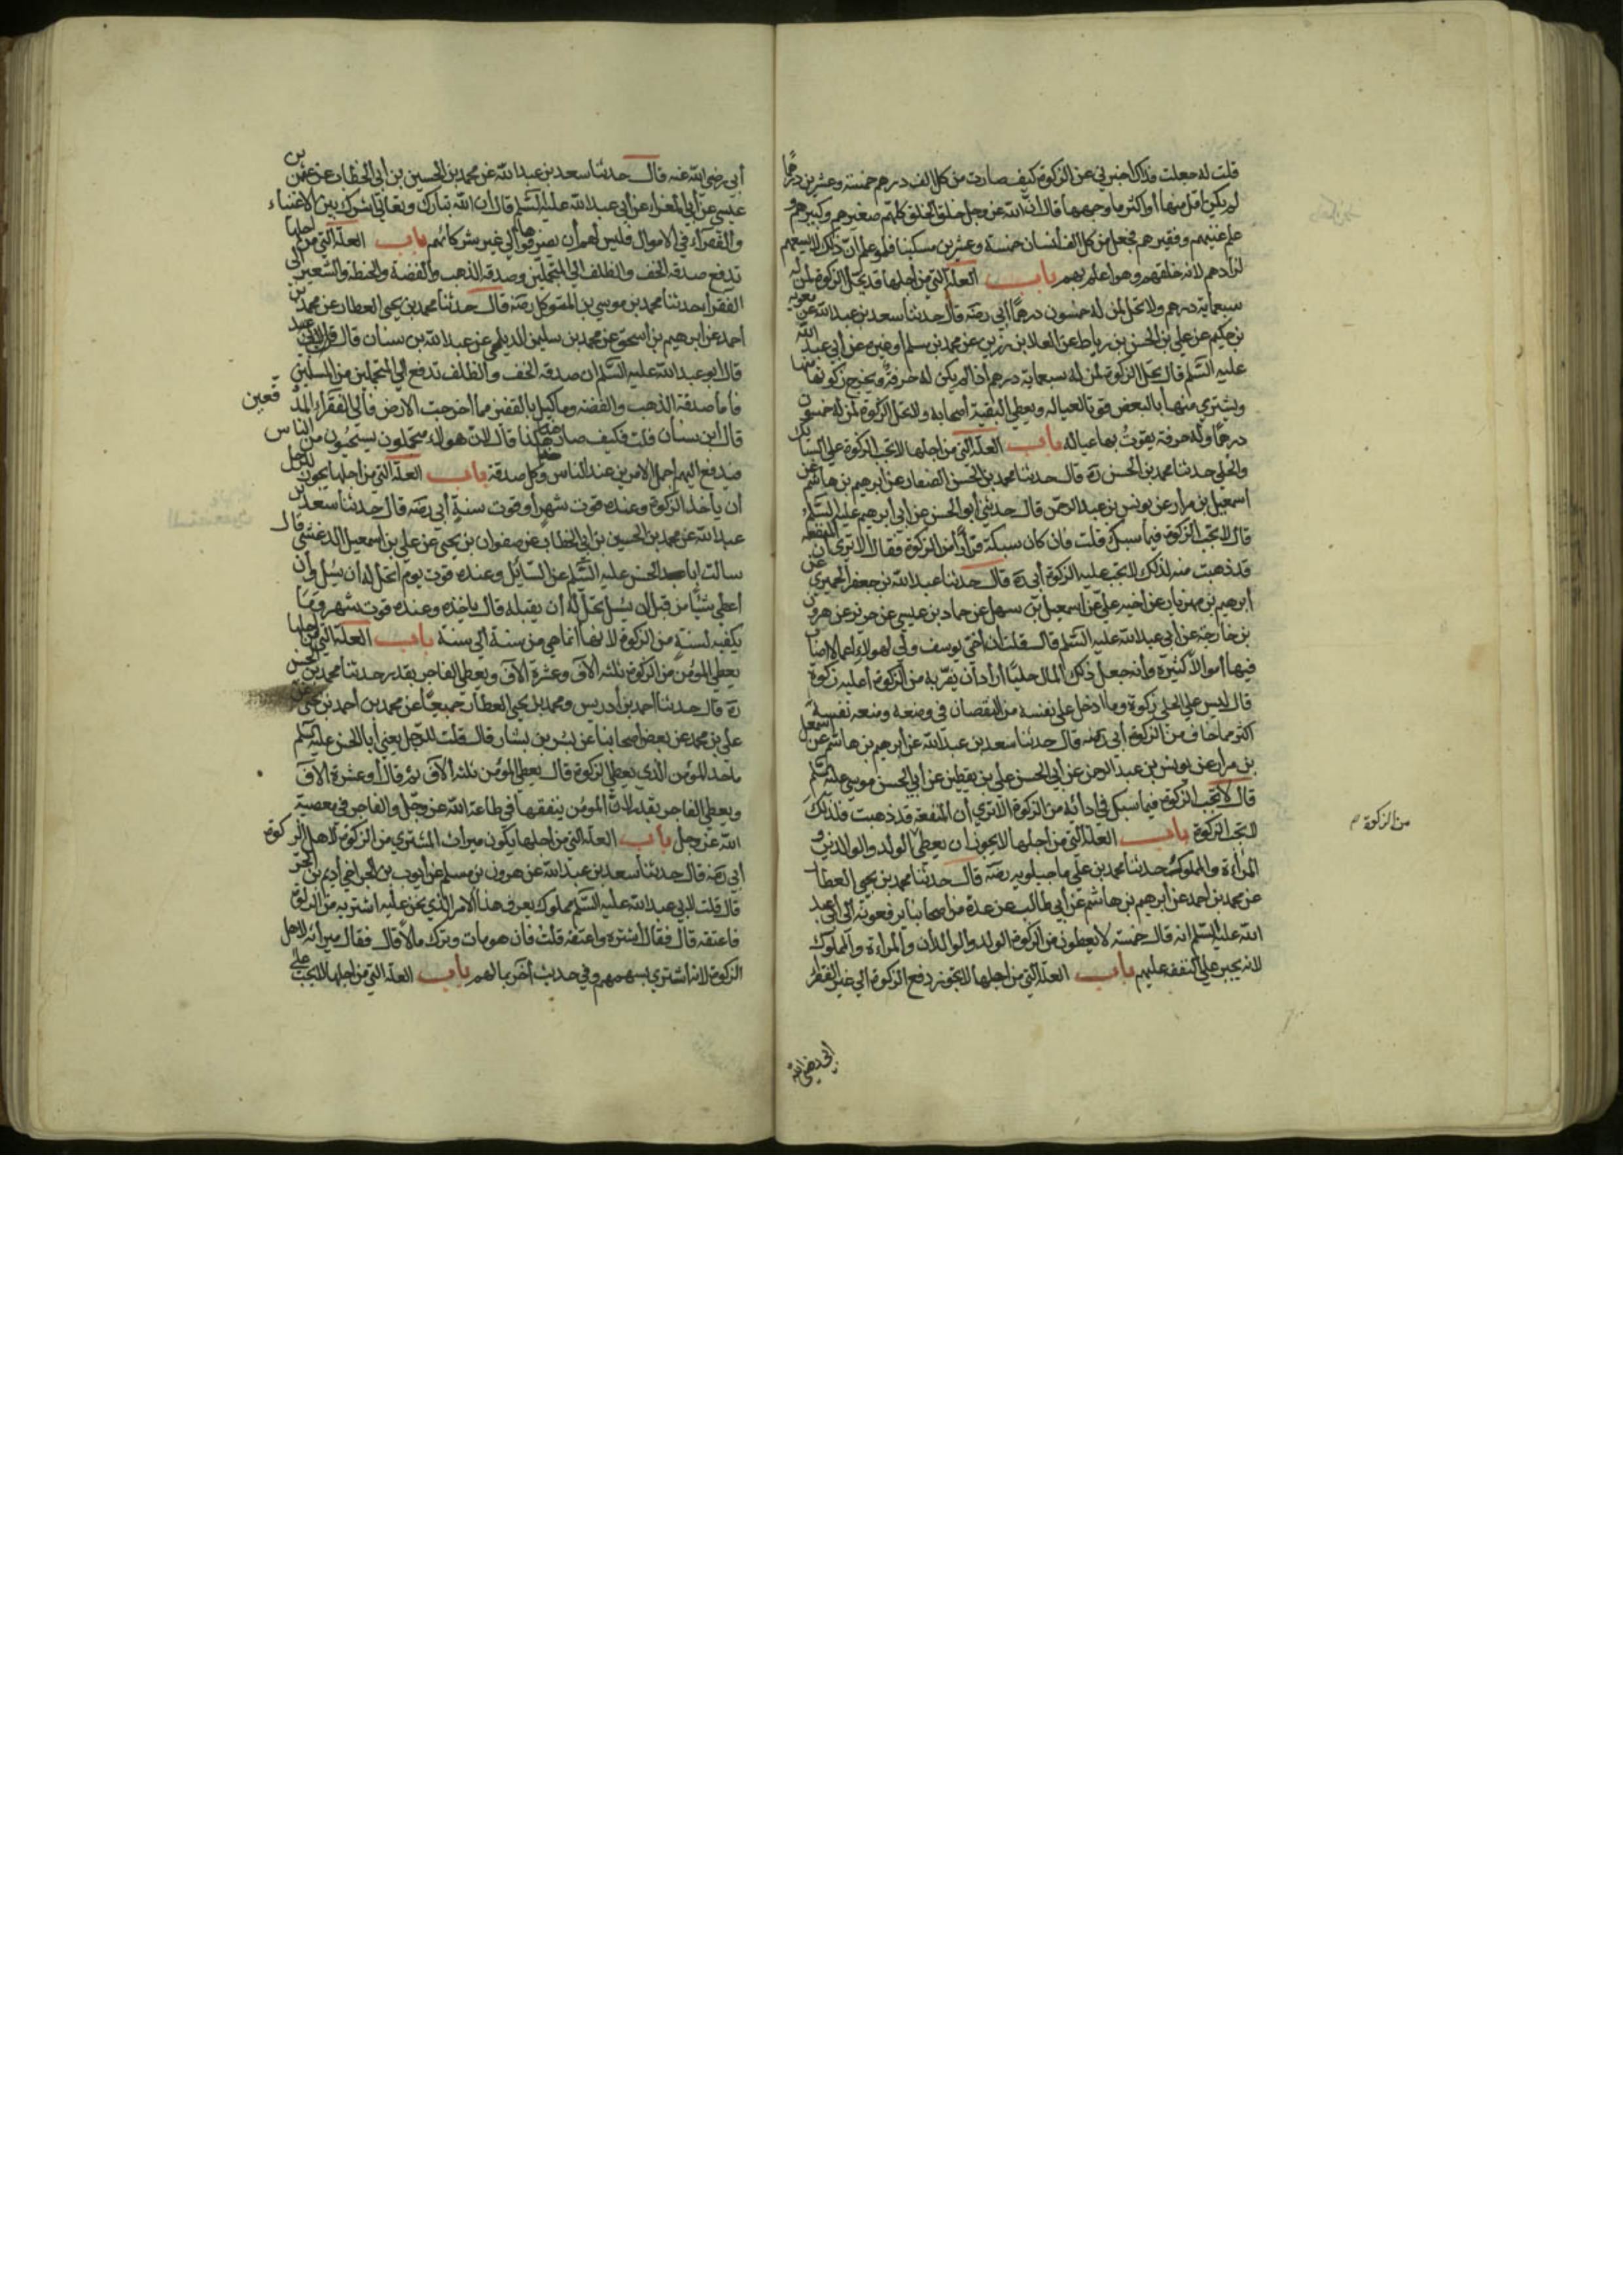 قلت له جعلت فداك اخبرني عن الزكوة كيف صارت من كل الف درهم خمسة وعشرين درهما
لم يكن اقل منها أو اكثر ما وجهها قال ان الله عز وجل خلق الخلق كلهم صغيرهم وكبيرهم و
علم غنيهم وفقيرهم فجعل من كل الف أنسان خمسة وعشرين مسكينا فلو علم أن ذلك لا يسعهم
لزادهم لانه خلقهم وهو اعلم بهم باب العلة التي من أجلها قد تحل الزكوة لمن له
سبعماية درهم ولا تحل لمن له خمسون درهما أبي رضه قال حدثنا سعد بن عبد الله عن معوية
بن حكيم عن علي بن الحسن بن رباط عن العلا بن رزين عن محمد بن مسلم أو غيره عن أبي عبد الله
عليه السلم قال تحل الزكوة لمن له سبعماية درهم أذا لم يكن له حرفة ويخرج زكوتها منها
ويشتري منها بالبعض قوتا لعياله ويعطي البقية أصحابه ولا تحل الزكوة لمن له خمسون
درهما وله حرفة يقوت بها عياله باب العلة التي من اجلها لا تجب الزكوة علي السبائك
والحلي حدثنا محمد بن الحسن ره قال حدثنا محمد بن الحسن الصفار عن أبرهيم بن هاشم عن
اسمعيل بن مرار عن يونس بن عبد الرحمن قال حدثني أبو الحسن عن أبي أبرهيم عليه السلم
قال لا تجب الزكوة فيما سبك قلت فان كان سبكه فرارا من الزكوة فقال الا تري أن المنفعة
قد ذهبت منه لذلك لا تجب عليه الزكوة أبي ره قال حدثنا عبد الله بن جعفر الحميري عن
أبرهيم بن مهزيار عن اخيه علي عن اسمعيل بن سهل عن حماد بن عيسي عن حريز عن هرون
بن خارجة عن أبي عبد الله عليه السلم قال قلت أن أخي يوسف ولي لهولاء اعمالا اصاب
فيها أموالا كثيرة وأنه جعل ذلك المال حليا أراد أن يفر به من الزكوة أعليه زكوة
قال ليس علي الحلي زكوة وما ادخل علي نفسه من النقصان في وضعه ومنعه نفسه
اكثر مما خاف من الزكوة أبي رضه قال حدثنا سعد بن عبد الله عن أبرهيم بن هاشم عن اسمعيل
بن مرار عن يونس بن عبد الرحمن عن أبي الحسن علي بن يقطين عن أبي الحسن موسي عليه السلم
قال لا تجب الزكوة فيما سبك الا تري أن المنفعة قد ذهبت فلذلك
لا تجب الزكوة باب العلة التي من اجلها لا يجوز ان يعطي الولد والوالدين و
المرأة والمملوك حدثنا محمد بن علي ماجيلويه رضه قال حدثنا محمد بن يحيي العطار
عن محمد بن احمد عن أبرهيم بن هاشم عن أبي طالب عن عدة من اصحابنا يرفعونه الي أبي عبد
الله عليه السلم انه قال خمسة لا يعطون من الزكوة الولد والوالدان والمراءة والمملوك
لانه يجبر علي النفقة عليهم باب العلة التي من اجلها لا يجوز دفع الزكوة الي غير الفقراء
من الزكوة م
أبي رضي الله
أبي رضي الله عنه قال حدثنا سعد بن عبد الله عن محمد بن الحسين بن أبي الخطاب عن عثمن بن
عيسي عن أبي المغراء عن أبي عبد الله عليه السلم قال ان الله تبارك وتعالي اشرك بين الاغنياء
والفقراء في الاموال فليس لهم أن يصرفوها الي غير شركائهم باب العلة التي من اجلها
تدفع صدقة الخف والظلف الي المتجملين وصدقة الذهب والفضة والحنطة والشعير الي
الفقرا حدثنا محمد بن موسي بن المتوكل رضه قال حدثنا محمد بن يحيي العطار عن محمد بن
احمد عن ابرهيم بن اسحق عن محمد بن سليمن الديلمي عن عبد الله بن سنان قال
قال ابو عبد الله عليه السلم ان صدقة الخف والظلف تدفع الي المتجملين من المسلمين
فاما صدقة الذهب والفضة وما كيل بالقفيز مما اخرجت الارض فألي الفقراء المدقعين
قال ابن سنان قلت فكيف صار هذا هكذا قال لان هولاء متجملون يستحيون من الناس
فيدفع اليهم اجمل الامرين عند الناس وكل صدقة باب العلة التي من اجلها يجوز للرجل
أن ياخذ الزكوة وعنده قوت شهر أو قوت سنة أبي رضه قال حدثنا سعد بن
عبد الله عن محمد بن الحسين بن أبي الخطاب عن صفوان بن يحيي عن علي بن اسمعيل الدغشي قال
سالت ابا الحسن عليه السلم عن السائل وعنده قوت يوم ايحل له أن يسئل وأن
اعطي شيئا من قبل ان يسئل يحل له أن يقبله قال ياخذه وعنده قوت شهر وما
يكفيه لسنة من الزكوة لانها انما هي من سنة الي سنة باب العلة التي من أجلها
يعطي المؤمن من الزكوة ثلثه الاف وعشرة الاف ويعطي الفاجر بقدر حدثنا محمد بن الحسن
ره قال حدثنا احمد بن أدريس ومحمد بن يحيي العطار جميعا عن محمد بن أحمد بن يحيي عن
علي بن محمد عن بعض أصحابنا عن بشر بن بشار قال قلت للرجل يعني أبا الحسن عليه السلم
ما حد المؤمن الذي يعطي الزكوة قال يعطي المؤمن ثلثه الاف ثم قال أو عشرة الاف
ويعطي الفاجر بقدر لان المؤمن ينفقها في طاعة الله عز وجل والفاجر في معصية
الله عز وجل باب العلة التي من اجلها يكون ميراث المشتري من الزكوة لاهل الزكوة
أبي رضه قال حدثنا سعد بن عبد الله عن هرون بن مسلم عن أيوب بن الحر اخي أديم بن الحر
قال قلت لابي عبد الله عليه السلم مملوك يعرف هذا الامر الذي نحن عليه اشتريه من الزكوة
فاعتقه قال فقال اشتره واعتقه قلت فان هو مات وترك مالا قال فقال ميراثه لاهل
الزكوة لانه اشتري بسهمهم وفي حديث أخر بمالهم باب العلة التي من اجلها لا تجب علي